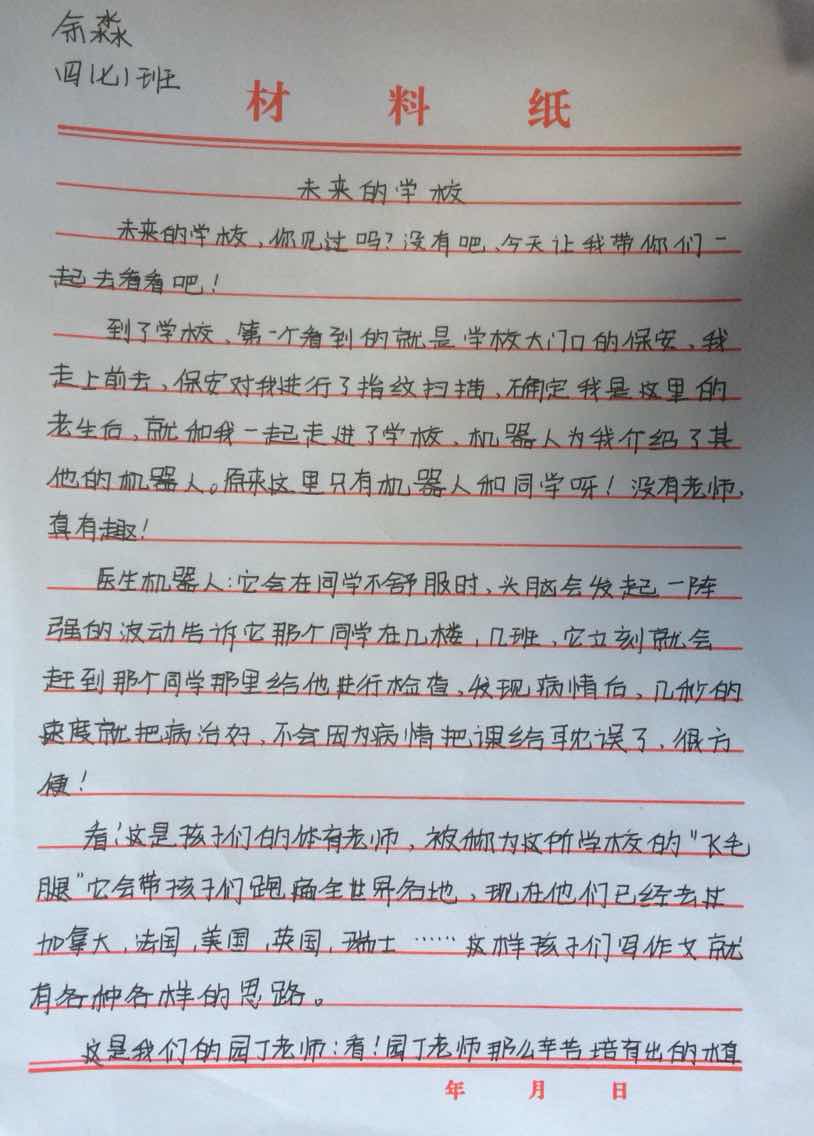 余淼
四(七)班
材料纸
未来的学校
未来的学校,你见过吗?没有吧,今天让我带你们一
起去看看吧!
到了学校,第一个看到的就是学校大门口的保安,我
走上前去,保安对我进行了指纹扫描,确定我是这里的
老生后,就和我一起走进了学校,机器人为我介绍了其
他的机器人。原来这里只有机器人和同学呀!没有老师,
真有趣!
医生机器人:它会在同学不舒服时,头脑会发起一阵
强的波动告诉它那个同学在几楼,几班,它立刻就会
赶到那个同学那里给他进行检查,发现病情后,几秒的
速度就把病治好,不会因为病情把课给耽误了,很方
便!
看!这是孩子们的体育老师,被称为这所学校的"飞毛
腿"它会带孩子们跑遍全世界各地,现在他们已经去过
加拿大,法国,美国,英国,瑞士……这样孩子们写作文就
有各种各样的思路。
这是我们的园丁老师:看!园丁老师那么辛苦培育出的植
年 月 日